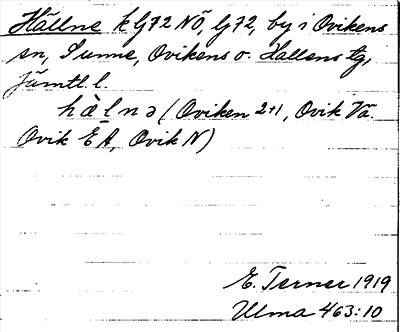 Hällne k G72 NÖ, G72, by i Ovikens
sn, Sunne, Ovikens o. Hallens tg,
Jämtl. l.
hæ̀lnə (Oviken 2+1, Ovik Vä
Ovik EA, Ovik N)
E. Terner 1919
Ulma 463:10